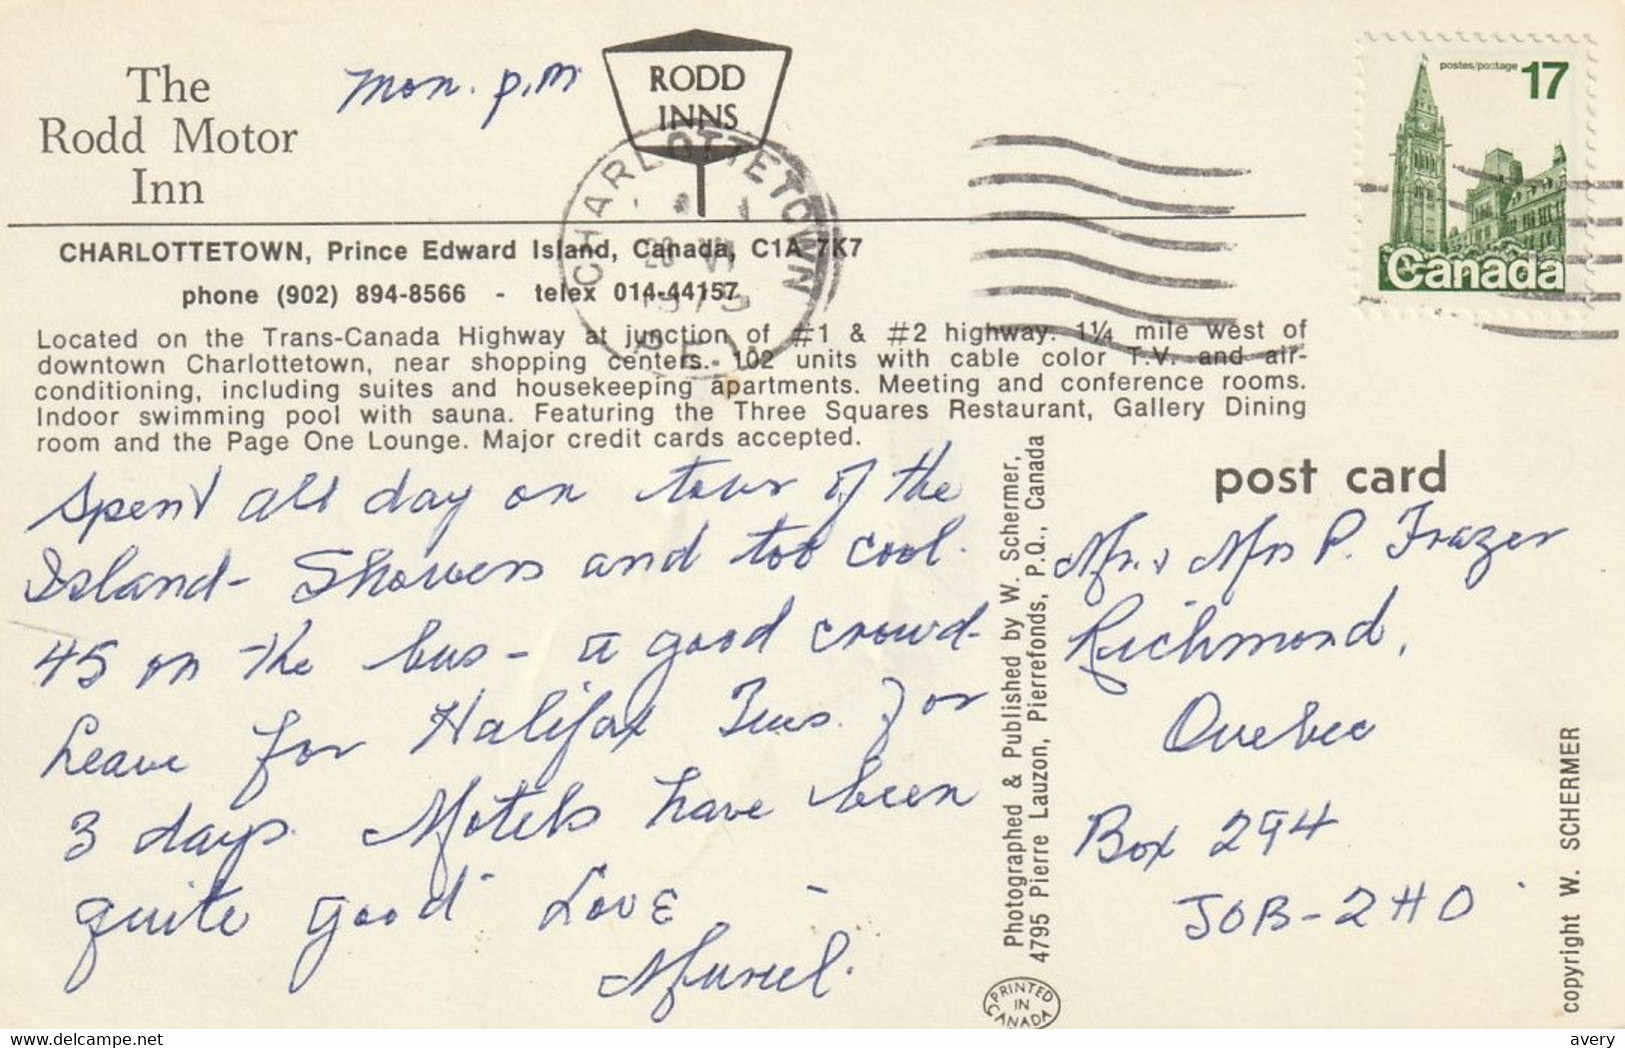 The
Rodd Motor
Inn
Mon. p.m
RODD
INNS
postes/postage 17
Canada
CHARLOTTETOWN
1979
P.E.I.
CHARLOTTETOWN, Prince Edward Island, Canada, C1A 7K7
phone (902) 894-8566 - telex 014-44157
Located on the Trans-Canada Highway at junction of #1 & #2 highway. 1¼ mile west of
downtown Charlottetown, near shopping centers. 102 units with cable color T.V. and air-
conditioning, including suites and housekeeping apartments. Meeting and conference rooms.
Indoor swimming pool with sauna. Featuring the Three Squares Restaurant, Gallery Dining
room and the Page One Lounge. Major credit cards accepted.
Spent all day on tour of the
Island - Showers and too cool.
45 on the bus - a good crowd -
Leave for Halifax Tues. for
3 days. Motels have been
quite good Love -
Muriel.
Photographed & Published by W. Schermer,
4795 Pierre Lauzon, Pierrefonds, P.Q., Canada
PRINTED
IN
CANADA
post card
Mr. & Mrs P. Frazer
Richmond,
Quebec
Box 294
JOB-2H0
copyright W. SCHERMER
www.delcampe.net
avery